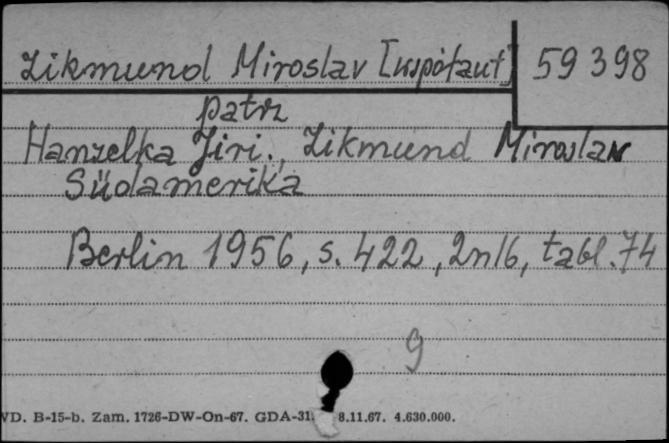 Zikmund Miroslav [współaut] 59 398
patrz
Hanzelka Jiri., Zikmund Miroslav
Südamerika
Berlin 1956, s. 422, 2nlb, tabl. 74
9
VD. B-15-b. Zam. 1726-DW-On-67. GDA-31. 8.11.67. 4.630.000.